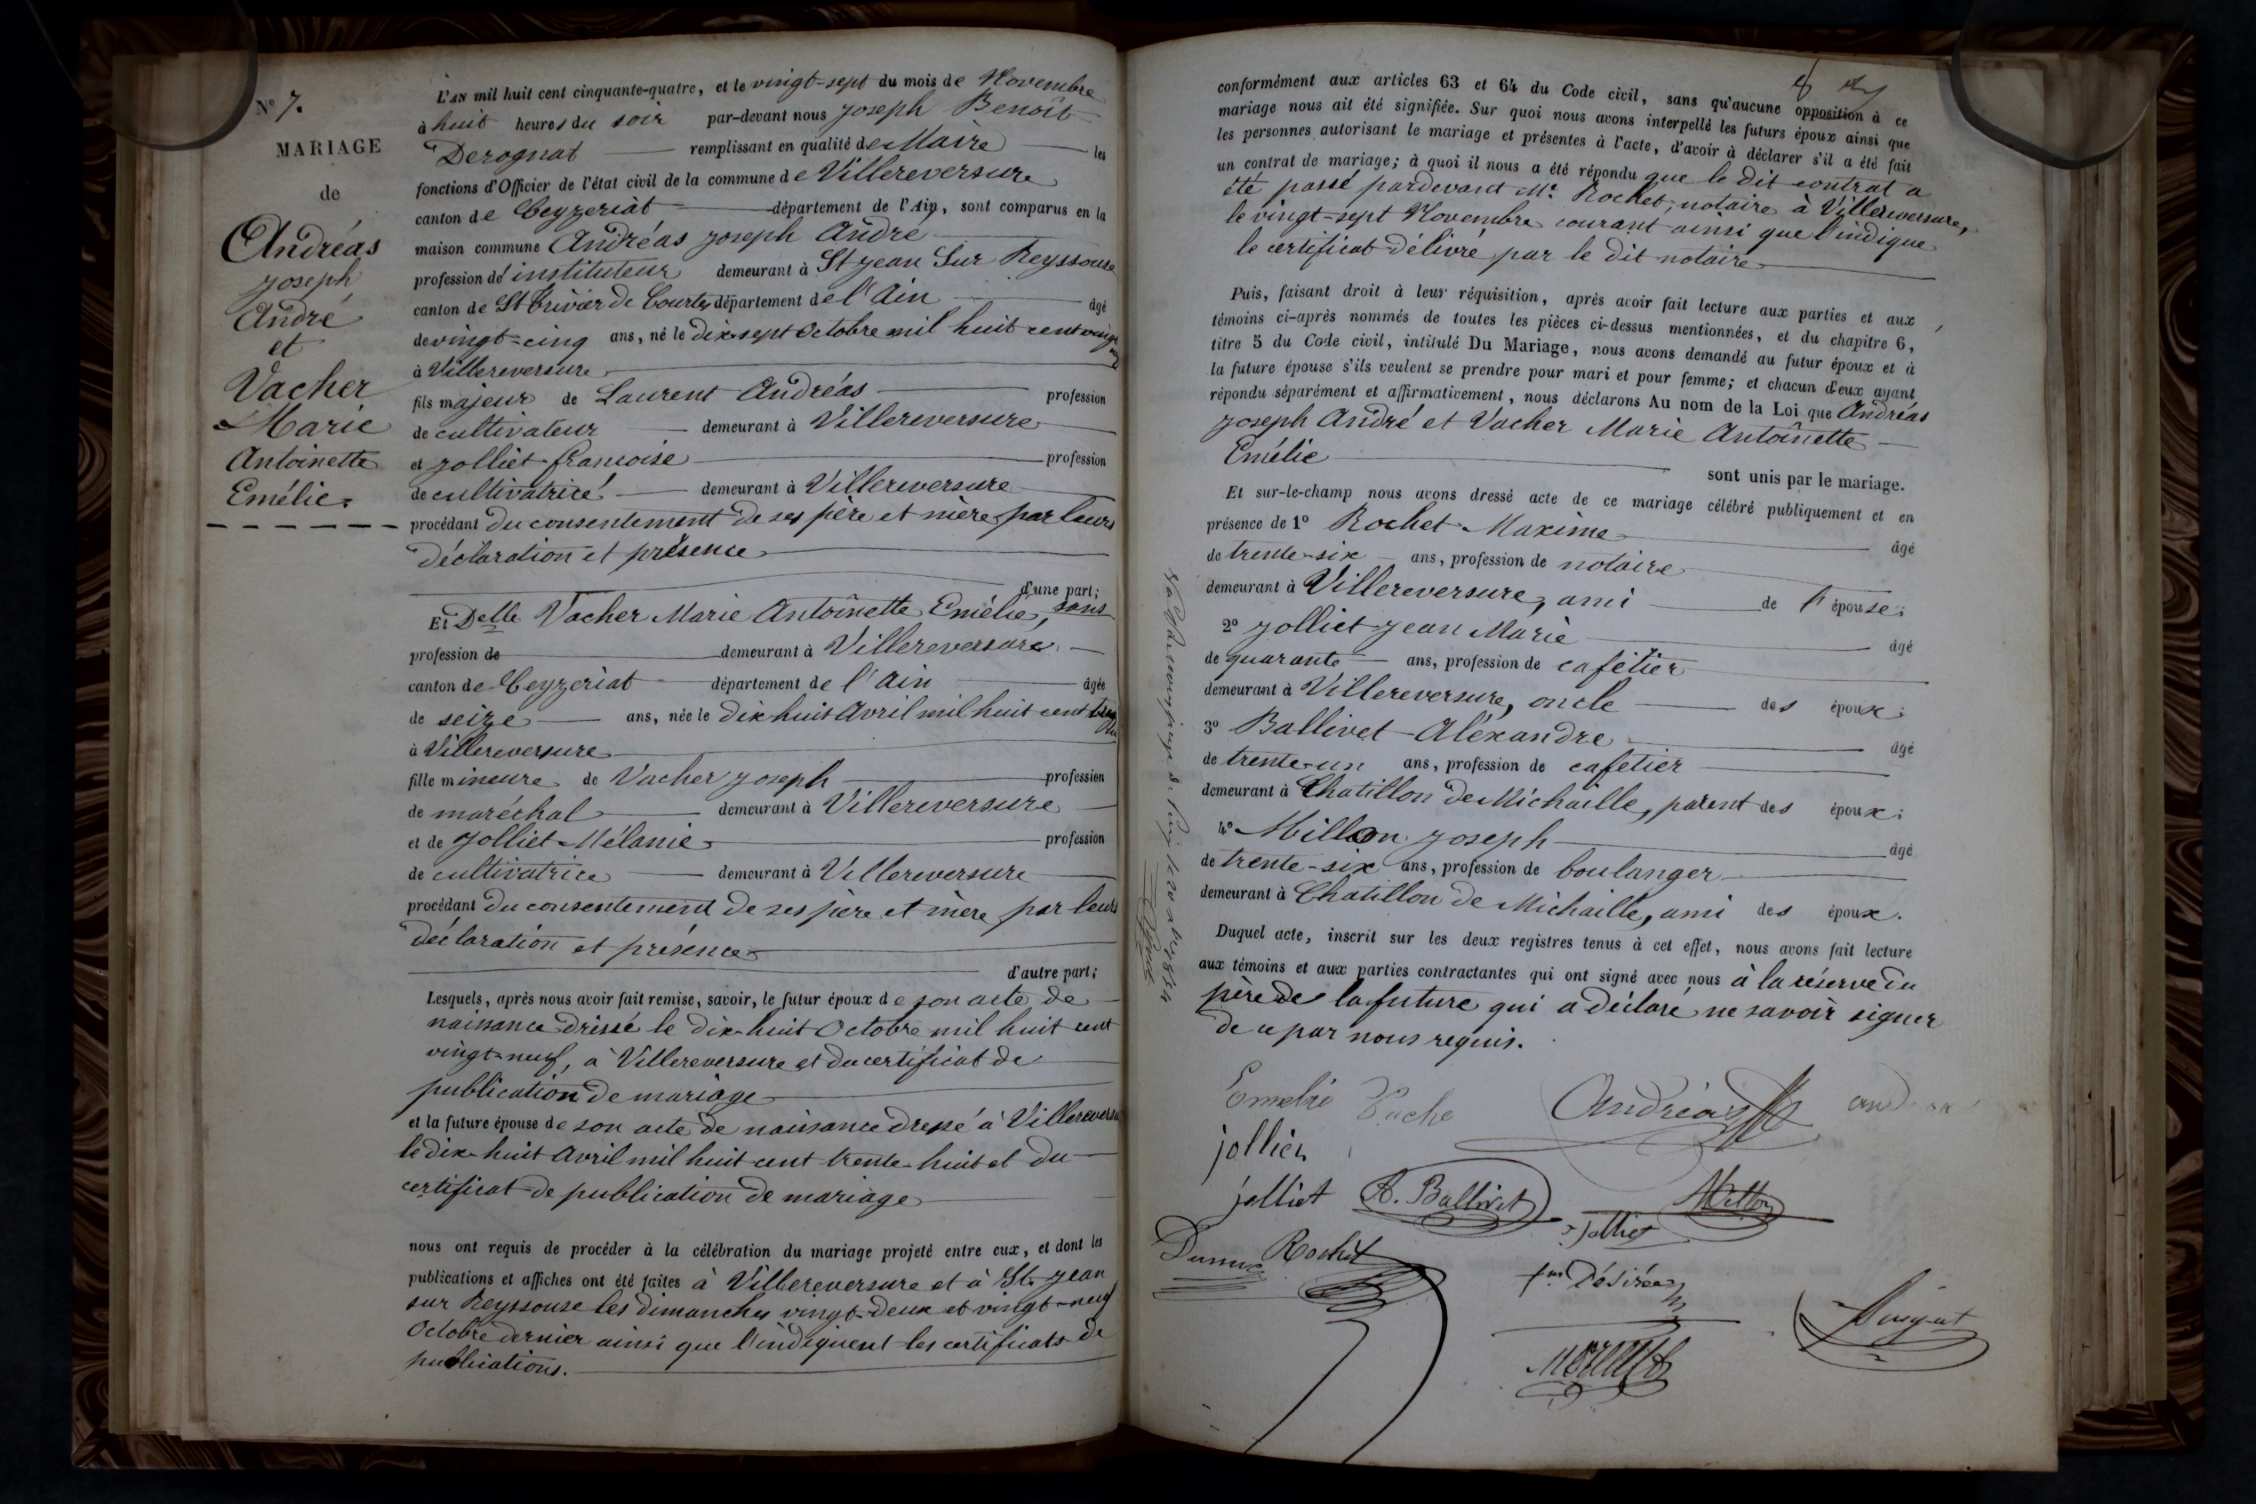 N° 7.
MARIAGE
de
Andréas
Joseph
André
et
Vacher
Marie
Antoinette
Emélie.
L'AN mil huit cent cinquante-quatre, et le vingt-sept du mois de Novembre
à huit heures du soir par-devant nous Joseph Benoît
Derognat remplissant en qualité de Maire les
fonctions d'Officier de l'état civil de la commune de Villereversure
canton de Ceyzeriat département de l'Ain, sont comparus en la
maison commune Andréas Joseph André
profession d'instituteur demeurant à St Jean Sur Reyssouze
canton de St Trivier de Courtes département de l'Ain âgé
de vingt-cinq ans, né le dix-sept Octobre mil huit cent vingt
neuf
à Villereversure
fils majeur de Laurent Andréas profession
de cultivateur demeurant à Villereversure
et Jolliet françoise profession
de cultivatrice demeurant à Villereversure
procédant du consentement de ses père et mère par leurs
déclaration et présence
d'une part;
Et Delle Vacher Marie Antoinette Emélie, sans
profession de demeurant à Villereversure
canton de Ceyzeriat département de l'Ain âgée
de seize ans, née le dix huit Avril mil huit cent trente
huit
à Villereversure
fille mineure de Vacher Joseph profession
de maréchal demeurant à Villereversure
et de Jolliet Mélanie profession
de cultivatrice demeurant à Villereversure
procédant du consentement de ses père et mère par leurs
déclaration et présence
d'autre part;
Lesquels, après nous avoir fait remise, savoir, le futur époux de son acte de
naissance dressé le dix-huit Octobre mil huit cent
vingt-neuf, à Villereversure et du certificat de
publication de mariage
et la future épouse de son acte de naissance dressé à Villereversure
le dix-huit Avril mil huit cent trente-huit et du
certificat de publication de mariage
nous ont requis de procéder à la célébration du mariage projeté entre eux, et dont les
publications et affiches ont été faites à Villereversure et à St Jean
sur Reyssouze les dimanches vingt-deux et vingt-neuf
Octobre dernier ainsi que l'indiquent les certificats de
publications.
conformément aux articles 63 et 64 du Code civil, sans qu'aucune opposition à ce
mariage nous ait été signifiée. Sur quoi nous avons interpellé les futurs époux ainsi que
les personnes autorisant le mariage et présentes à l'acte, d'avoir à déclarer s'il a été fait
un contrat de mariage; à quoi il nous a été répondu que le dit contrat a
été passé pardevant Me. Rochet, notaire à Villereversure,
le vingt-sept Novembre courant ainsi que l'indique
le certificat délivré par le dit notaire
Puis, faisant droit à leur réquisition, après avoir fait lecture aux parties et aux
témoins ci-après nommés de toutes les pièces ci-dessus mentionnées, et du chapitre 6,
titre 5 du Code civil, intitulé Du Mariage, nous avons demandé au futur époux et à
la future épouse s'ils veulent se prendre pour mari et pour femme; et chacun d'eux ayant
répondu séparément et affirmativement, nous déclarons Au nom de la Loi que Andréas
Joseph André et Vacher Marie Antoinette
Emélie
sont unis par le mariage.
Et sur-le-champ nous avons dressé acte de ce mariage célébré publiquement et en
présence de 1° Rochet Maxime âgé
de trente-six ans, profession de notaire
demeurant à Villereversure, ami de l'épouse;
2° Jolliet Jean Marie âgé
de quarante ans, profession de cafétier
demeurant à Villereversure, oncle des époux;
3° Ballivet Aléxandre âgé
de trente-un ans, profession de cafetier
demeurant à Chatillon de Michaille, parent des époux;
4° Millon Joseph âgé
de trente-six ans, profession de boulanger
demeurant à Chatillon de Michaille, ami des époux.
Duquel acte, inscrit sur les deux registres tenus à cet effet, nous avons fait lecture
aux témoins et aux parties contractantes qui ont signé avec nous à la réserve du
père de la future qui a déclaré ne savoir signer
de ce par nous requis.
Emelie Vache Andréas
jollier
jolliet A. Ballivet Millon
Jolliet
Rochet
Désirée